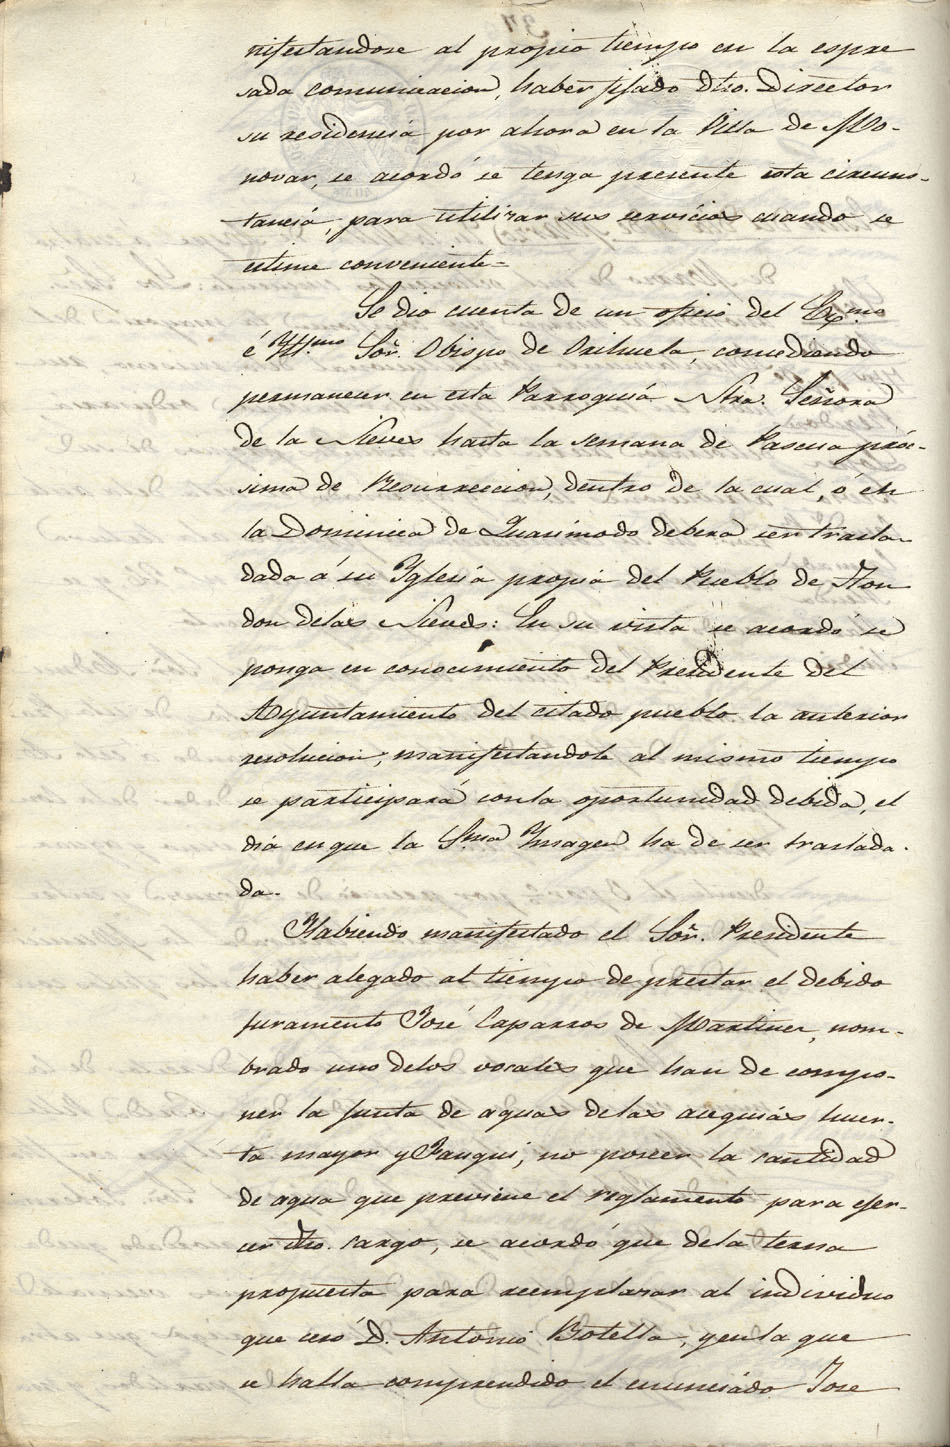 nifestandose al propio tiempo en la espre
sada comunicacion, haber fijado dho. Director
su residencia por ahora en la Villa de Mo-
novar, se acordó se tenga presente esta circuns-
tancia, para utilizar sus servicios cuando se
estime conveniente=
Se dio cuenta de un oficio del Exmo
é Yllmo Sor. Obispo de Orihuela, concediendo
permanecer en esta Parroquia Ntra. Señora
de la Nieves hasta la semana de Pascua próc-
sima de Resurreccion, dentro de la cual, ó en
la Dominica de Quasimodo debera ser trasla-
dada á su Yglesia propia del Pueblo de Hon
don delas Nieves: En su vista se acordó se
ponga en conocimiento del Presidente del
Ayuntamiento del citado pueblo la anterior
resolucion, manifestandole al mismo tiempo
se participará conla oportunidad debida, el
dia enque la Sma Ymagen ha de ser traslada-
da.
Habiendo manifestado el Sor. Presidente
haber alegado al tiempo de prestar el debido
juramento José Caparros de Martinez, nom-
brado uno delos vocales que han de compo-
ner la junta de aguas delas acequias huer-
ta mayor y Fauquí, no poseer la cantidad
de agua que previene el reglamento para ejer-
cer dho. cargo, se acordó que dela terna
propuesta para reemplazar al individuo
que cesó D. Antonio Botella, yenla que
se halla comprendido el enunciado Jose